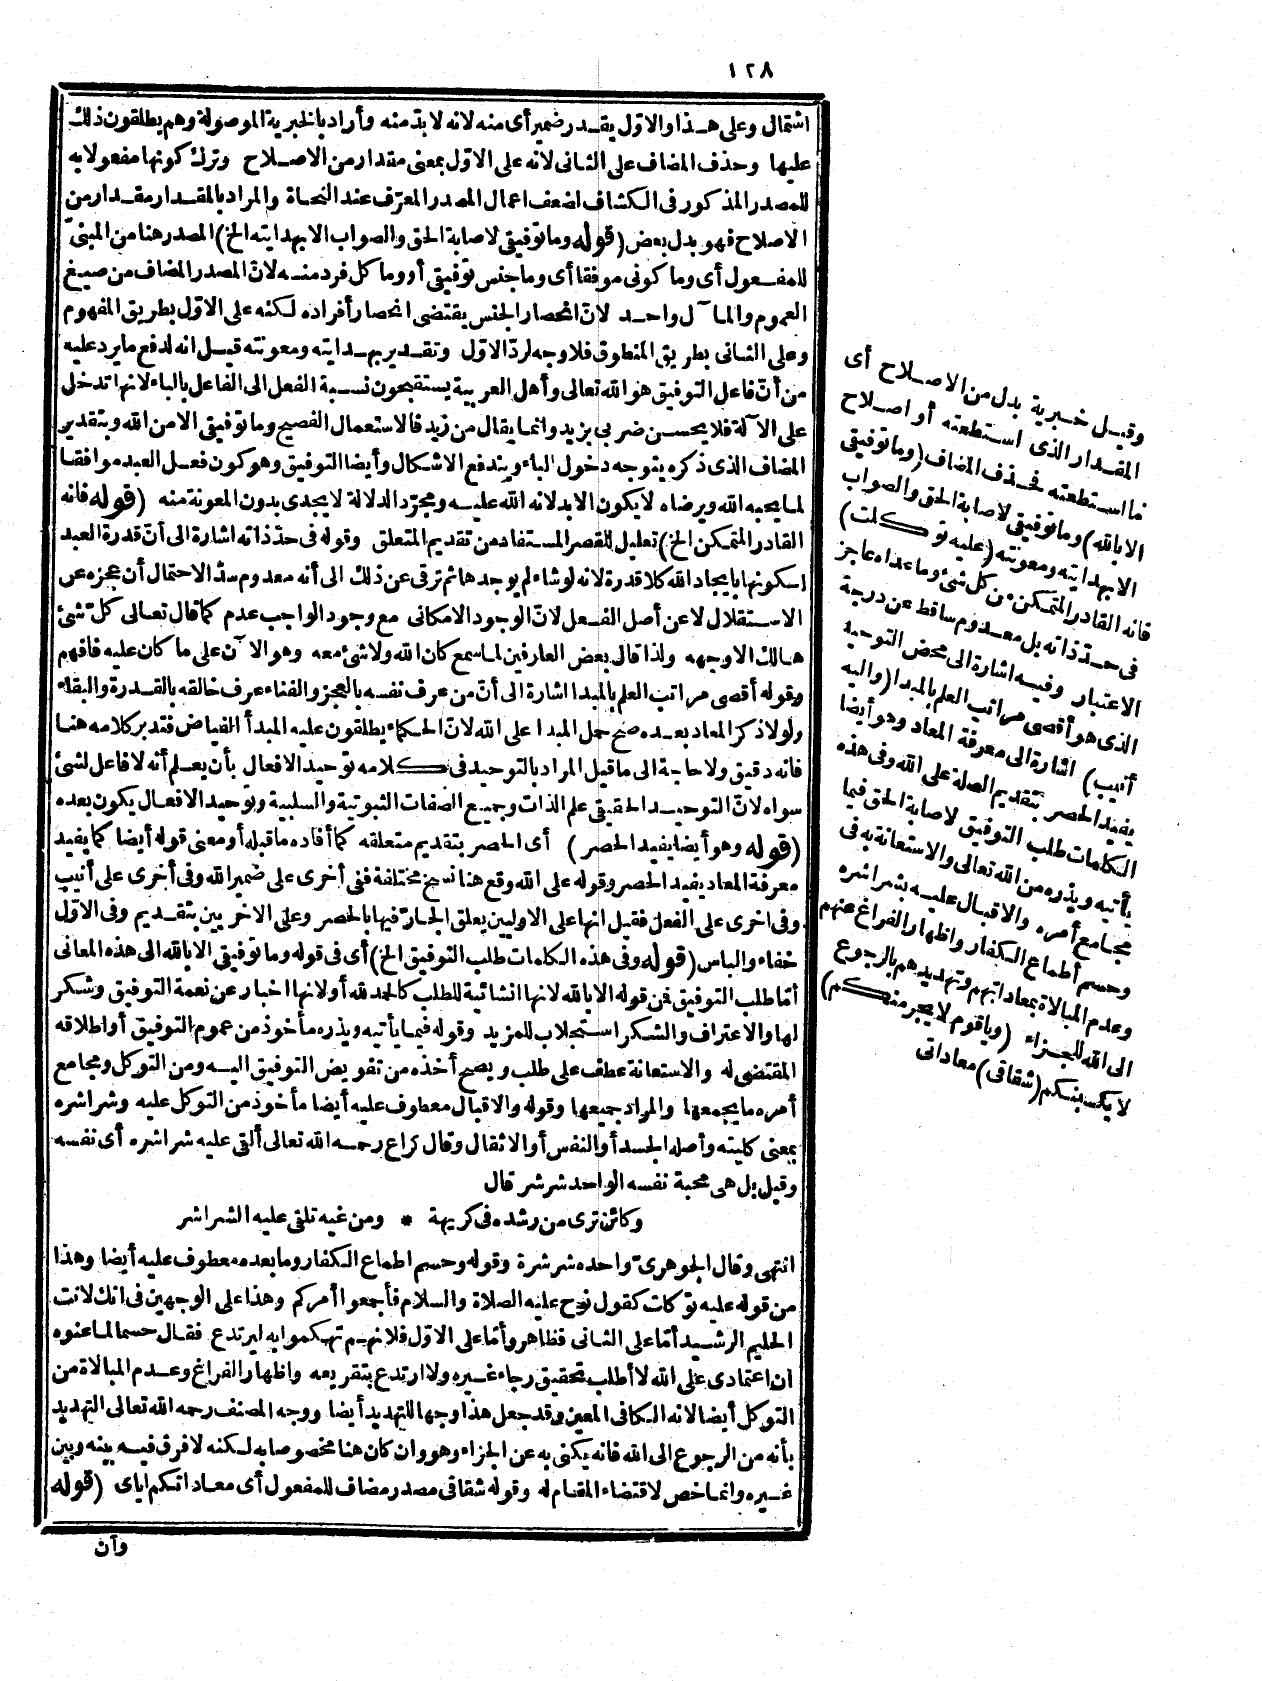 ١٢٨
اشتمال وعلى هذا والاوّل يقدر ضمير أى منه لانه لابدّ منه وأراد بالخبرية الموصولة وهم يطلقون ذلك
عليها وحذف المضاف على الثانى لانه على الاوّل بمعنى مقدار من الاصلاح وترك كونها مفعولا به
للمصدر المذكور فى الكشاف لضعف اعمال المصدر المعرّف عند النحاة والمراد بالمقدار مقدار من
الاصلاح فهو بدل بعض (قوله وما توفيقى لاصابة الحق والصواب الابهدايته الخ) المصدر هنا من المبنىّ
للمفعول أى وما كونى موفقا أى وما جنس توفيقى أو وما كل فرد منه لانّ المصدر المضاف من صيغ
العموم والمآل واحد لانّ انحصار الجنس يقتضى انحصار أفراده لكنه على الاوّل بطريق المفهوم
وعلى الثانى بطريق المنطوق فلا وجه لردّ الاوّل وتقدير بهدايته ومعونته قيل انه لدفع ما يرد عليه
من أنّ فاعل التوفيق هو الله تعالى وأهل العربية يستقبحون نسبة الفعل الى الفاعل بالباء لانها تدخل
على الآلة فلا يحسن ضربى بزيد وانما يقال من زيد فالاستعمال الفصيح وما توفيقى الا من الله وبتقدير
المضاف الذى ذكره يتوجه دخول الباء ويندفع الاشكال وأيضا التوفيق وهو كون فعل العبد موافقا
لما يحبه الله ويرضاه لا يكون الا بدلالة الله عليه ومجرّد الدلالة لا يجدى بدون المعونة منه (قوله فانه
القادر المتمكن الخ) تعليل للقصر المستفاد من تقديم المتعلق وقوله فى حدّ ذاته اشارة الى أنّ قدرة العبد
لكونها بايجاد الله كلا قدرة لانه لو شاء لم يوجدها ثم ترقى عن ذلك الى أنه معدوم سدّ الاحتمال أن عجزه عن
الاستقلال لا عن أصل الفعل لانّ الوجود الامكانى مع وجود الواجب عدم كما قال تعالى كلّ شئ
هالك الا وجهه ولذا قال بعض العارفين لما سمع كان الله ولا شئ معه وهو الآن على ما كان عليه فافهم
وقوله أقصى مراتب العلم بالمبدا اشارة الى أنّ من عرف نفسه بالعجز والفناء عرف خالقه بالقدرة والبقاء
ولو لا ذكر المعاد بعده صح حمل المبدا على الله لانّ الحكماء يطلقون عليه المبدأ الفياض فتدبر كلامه هنا
فانه دقيق ولا حاجة الى ما قيل المراد بالتوحيد فى كلامه توحيد الافعال بأن يعلم أنه لا فاعل لشئ
سواه لانّ التوحيد الحقيقى علم الذات وجميع الصفات الثبوتية والسلبية وتوحيد الافعال يكون بعده
(قوله وهو أيضا يفيد الحصر) أى الحصر بتقديم متعلقه كما أفاده ما قبله أو معنى قوله أيضا كما يفيد
معرفة المعاد يفيد الحصر وقوله على الله وقع هنا نسخ مختلفة ففى أخرى على ضمير الله وفى أخرى على أنيب
وفى اخرى على الفعل فقيل انها على الاوليين يعلق الجارّ فيها بالحصر وعلى الاخريين بتقديم وفى الاوّل
خفاء والباس (قوله وفى هذه الكلمات طلب التوفيق الخ) أى فى قوله وما توفيقى الا بالله الى هذه المعانى
أمّا طلب التوفيق فمن قوله الا بالله لانها انشائية للطلب كالحمد لله أو لانها اخبار عن نعمة التوفيق وشكر
لها والاعتراف والشكر استجلاب للمزيد وقوله فيما يأتيه ويذره مأخوذ من عموم التوفيق أو اطلاقه
المقتضى له والاستعانة عطف على طلب ويصح أخذه من تفويض التوفيق اليه ومن التوكل ومجامع
أمره ما يجمعها والمراد جميعها وقوله والاقبال معطوف عليه أيضا مأخوذ من التوكل عليه وشراشره
بمعنى كليته وأصله الجسد أو النفس أو الاثقال وقال كراع رحمه الله تعالى ألقى عليه شراشره أى نفسه
وقيل بل هى محبة نفسه الواحد شرشر قال
وكائن ترى من رشده فى كريهة * ومن غيه تلقى عليه الشراشر
انتهى وقال الجوهرىّ واحده شرشرة وقوله وحسم اطماع الكفار وما بعده معطوف عليه أيضا وهذا
من قوله عليه توكلت كقول نوح عليه الصلاة والسلام فأجمعوا أمركم وهذا على الوجهين فى انك لانت
الحليم الرشيد أمّا على الثانى فظاهر وأمّا على الاوّل فلانهم تهكموا به ليرتدع فقال حسما لما عنوه
ان اعتمادى على الله لا أطلب تحقيق رجاء غيره ولا ارتدع بتقريعه واظهار الفراغ وعدم المبالاة من
التوكل أيضا لانه الكافى المعين وقد جعل هذا وجها للتهديد أيضا ووجه المصنف رحمه الله تعالى التهديد
بأنه من الرجوع الى الله فانه يكنى به عن الجزاء وهو وان كان هنا مخصوصا به لكنه لا فرق فيه بينه وبين
غيره وانما خص لاقتضاء المقام له وقوله شقاقى مصدر مضاف للمفعول أى معاداتكم اياى (قوله
وآن
وقيل خبرية بدل من الاصلاح أى
المقدار الذى استطعته أو اصلاح
ما استطعته فحذف المضاف (وما توفيقى
الا بالله) وما توفيقى لاصابة الحق والصواب
الابهدايته ومعونته (عليه توكلت)
فانه القادر المتمكن من كل شئ وما عداه عاجز
فى حدّ ذاته بل معدوم ساقط عن درجة
الاعتبار وفيه اشارة الى محض التوحيد
الذى هو أقصى مراتب العلم بالمبدا (واليه
أنيب) اشارة الى معرفة المعاد وهو أيضا
يفيد الحصر بتقديم الصلة على الله وفى هذه
الكلمات طلب التوفيق لاصابة الحق فيما
يأتيه ويذره من الله تعالى والاستعانة به فى
مجامع أمره والاقبال عليه بشراشره
وحسم أطماع الكفار واظهار الفراغ عنهم
وعدم المبالاة بمعاداتهم وتهديدهم بالرجوع
الى الله للجزاء (ويا قوم لا يجرمنكم)
لا يكسبنكم (شقاقى) معاداتى